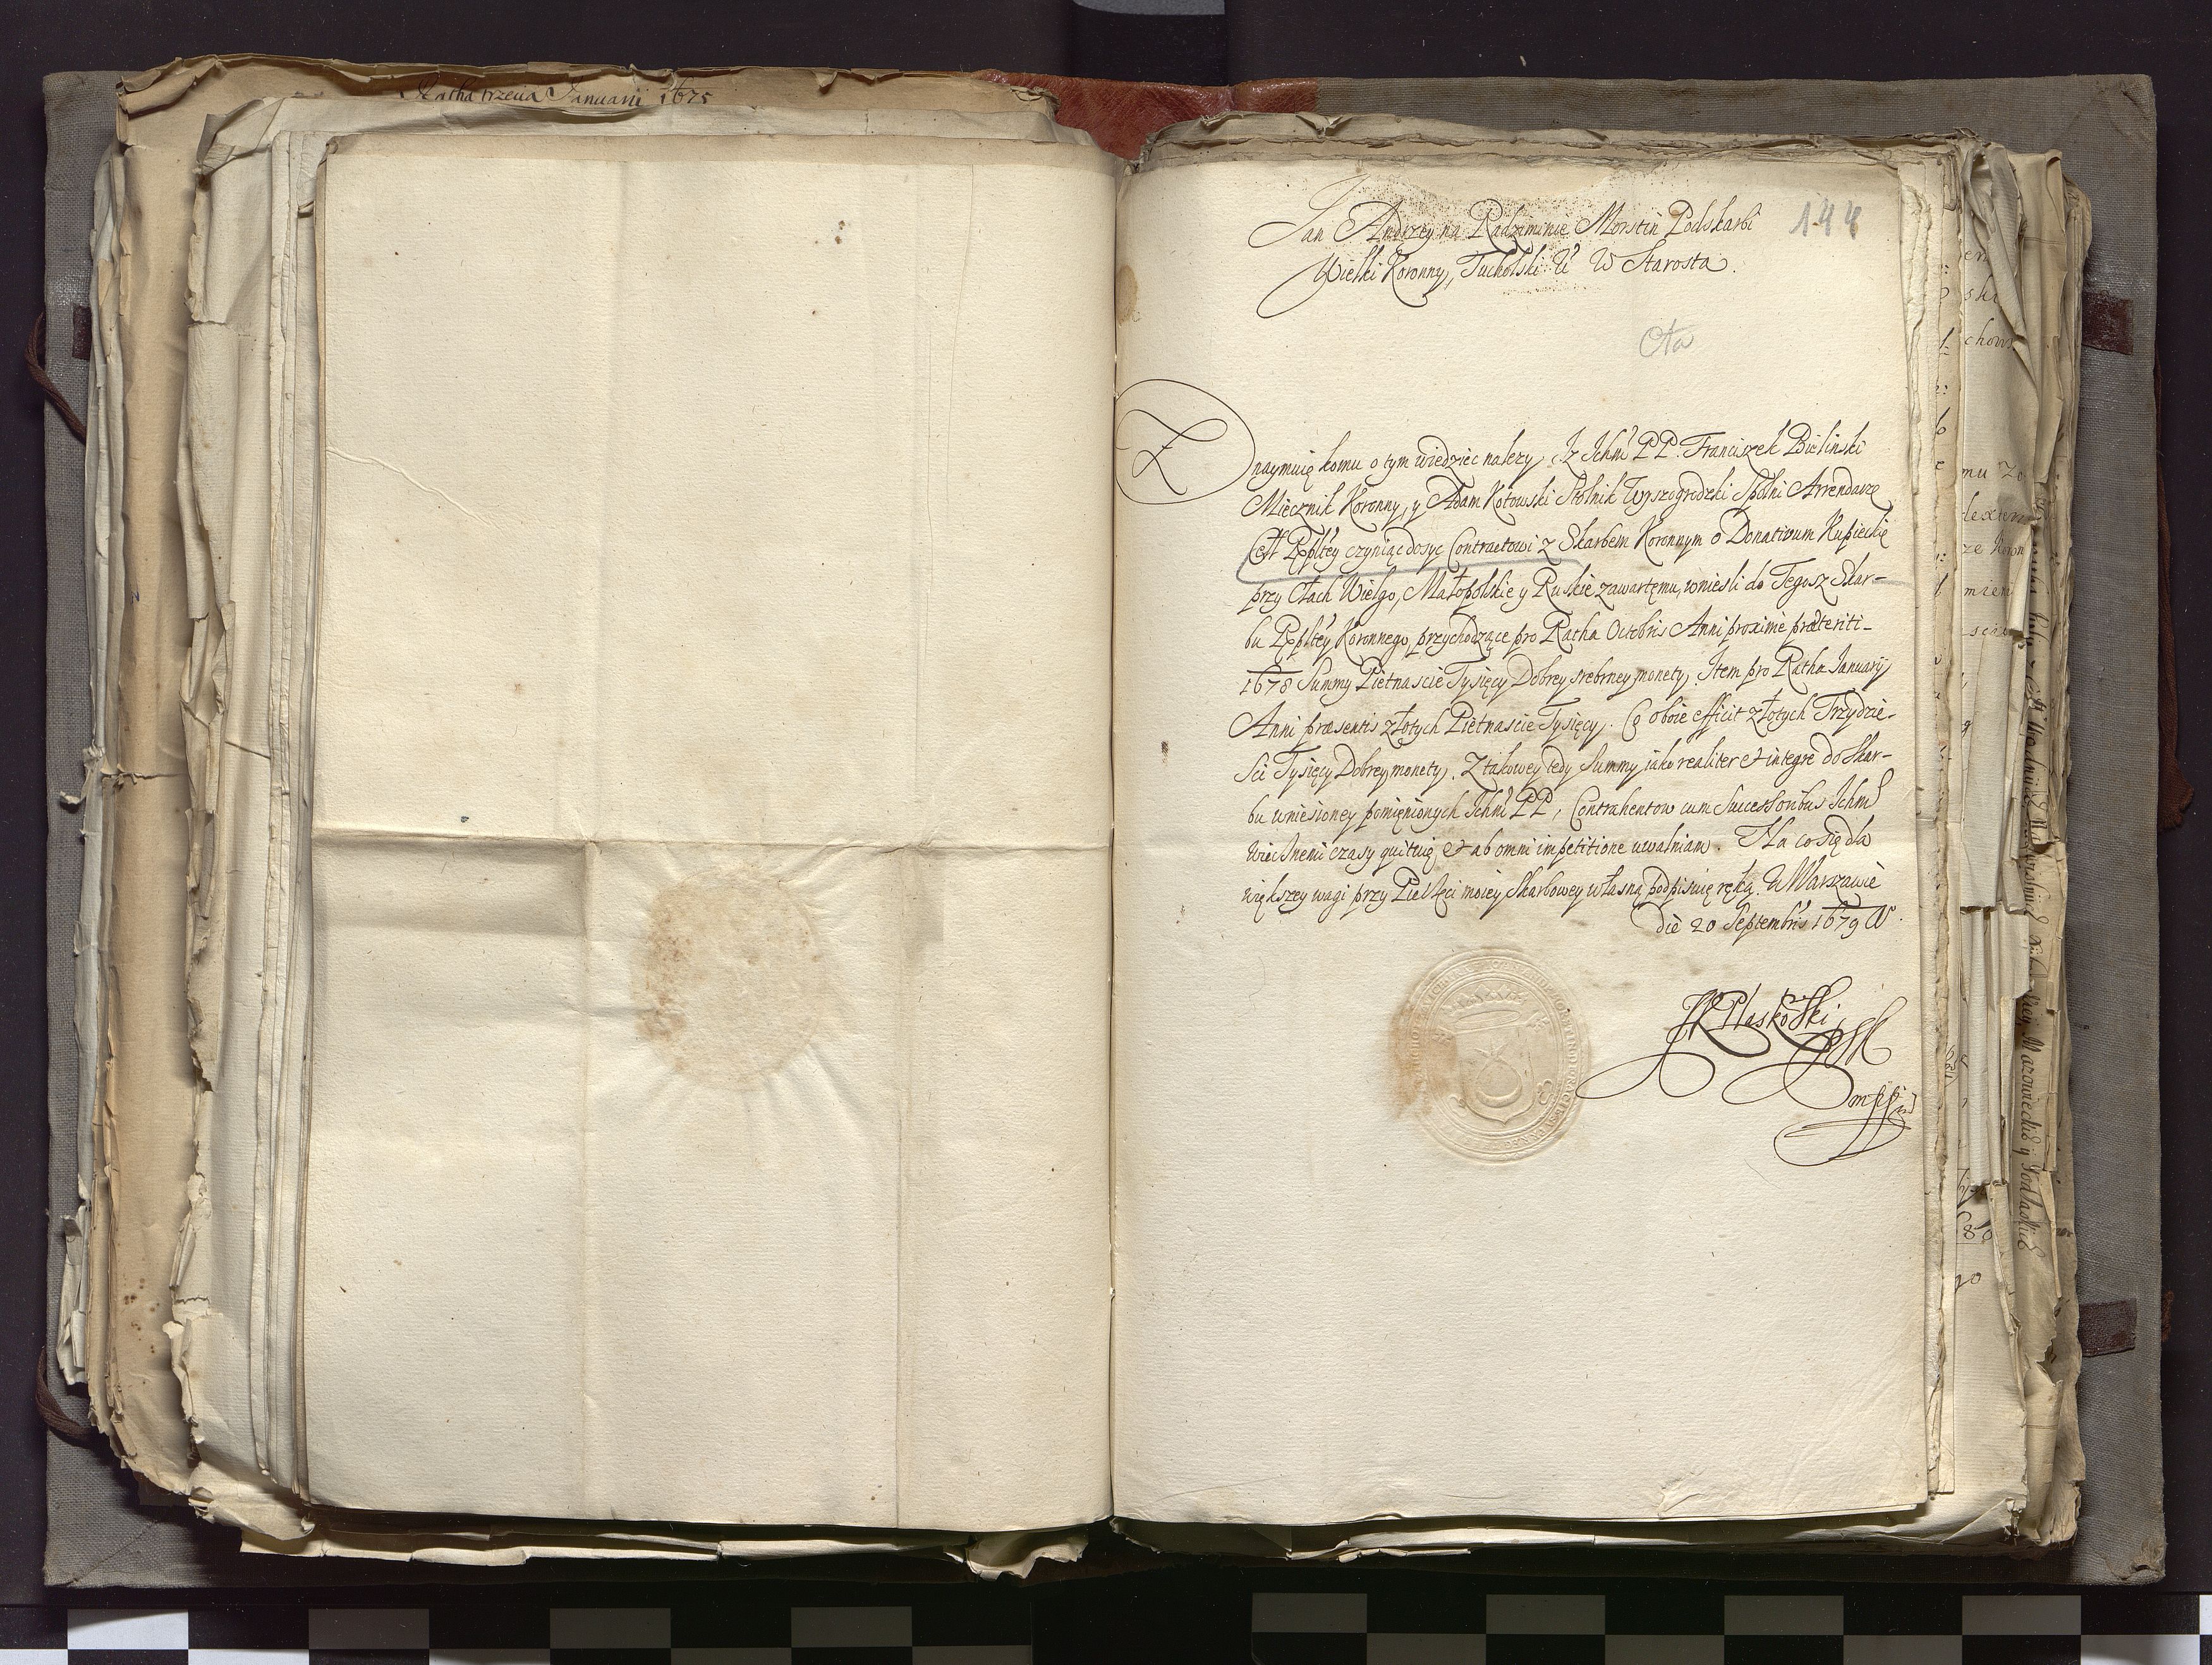 Ratha trzecia Januarii 1675
Jan Andrzey na Radziminie Morstin Podskarbi
144
Wielki Koronny, Tucholski W Starosta.
Cła
Znaymuię komu o tym wiedziec nalezy, Iz Ichm PP. Franciszek Bielinski
Miecznik Koronny, y Adam Kotowski Stolnik Wyszogrodzki Spolni Arrendarze
Ceł Rzpltey czyniąc dosyc Contractowi z Skarbem Koronnym o Donativum Kupieckie
przy Cłach Wielgo, Małopolskie y Ruskie zawartemu, wniesli do Tegosz Skar-
bu Rzpltey Koronnego, przychodzące pro Ratha Octobris Anni proxime praeteriti
1678 Summy Pietnascie Tysięcy Dobrey srebrney monety. Item pro Ratha Januarij
Anni praesentis złotych Pietnascie Tysięcy. Co oboie efficit złotych Trzydzie-
sci Tysięcy Dobrey monety. Z takowey tedy Summy jako realiter et integre do Skar-
bu wniesioney pomienionych Ichm PP, Contrahentow cum Successoribus Ichm
wiecznemi czasy quituię, et ab omni impetitione uwalniam. Na co się dla
większey wagi przy Pieczęci moiey Skarbowey własną podpisuię ręką. W Warszawie
die 20 Septembris 1679